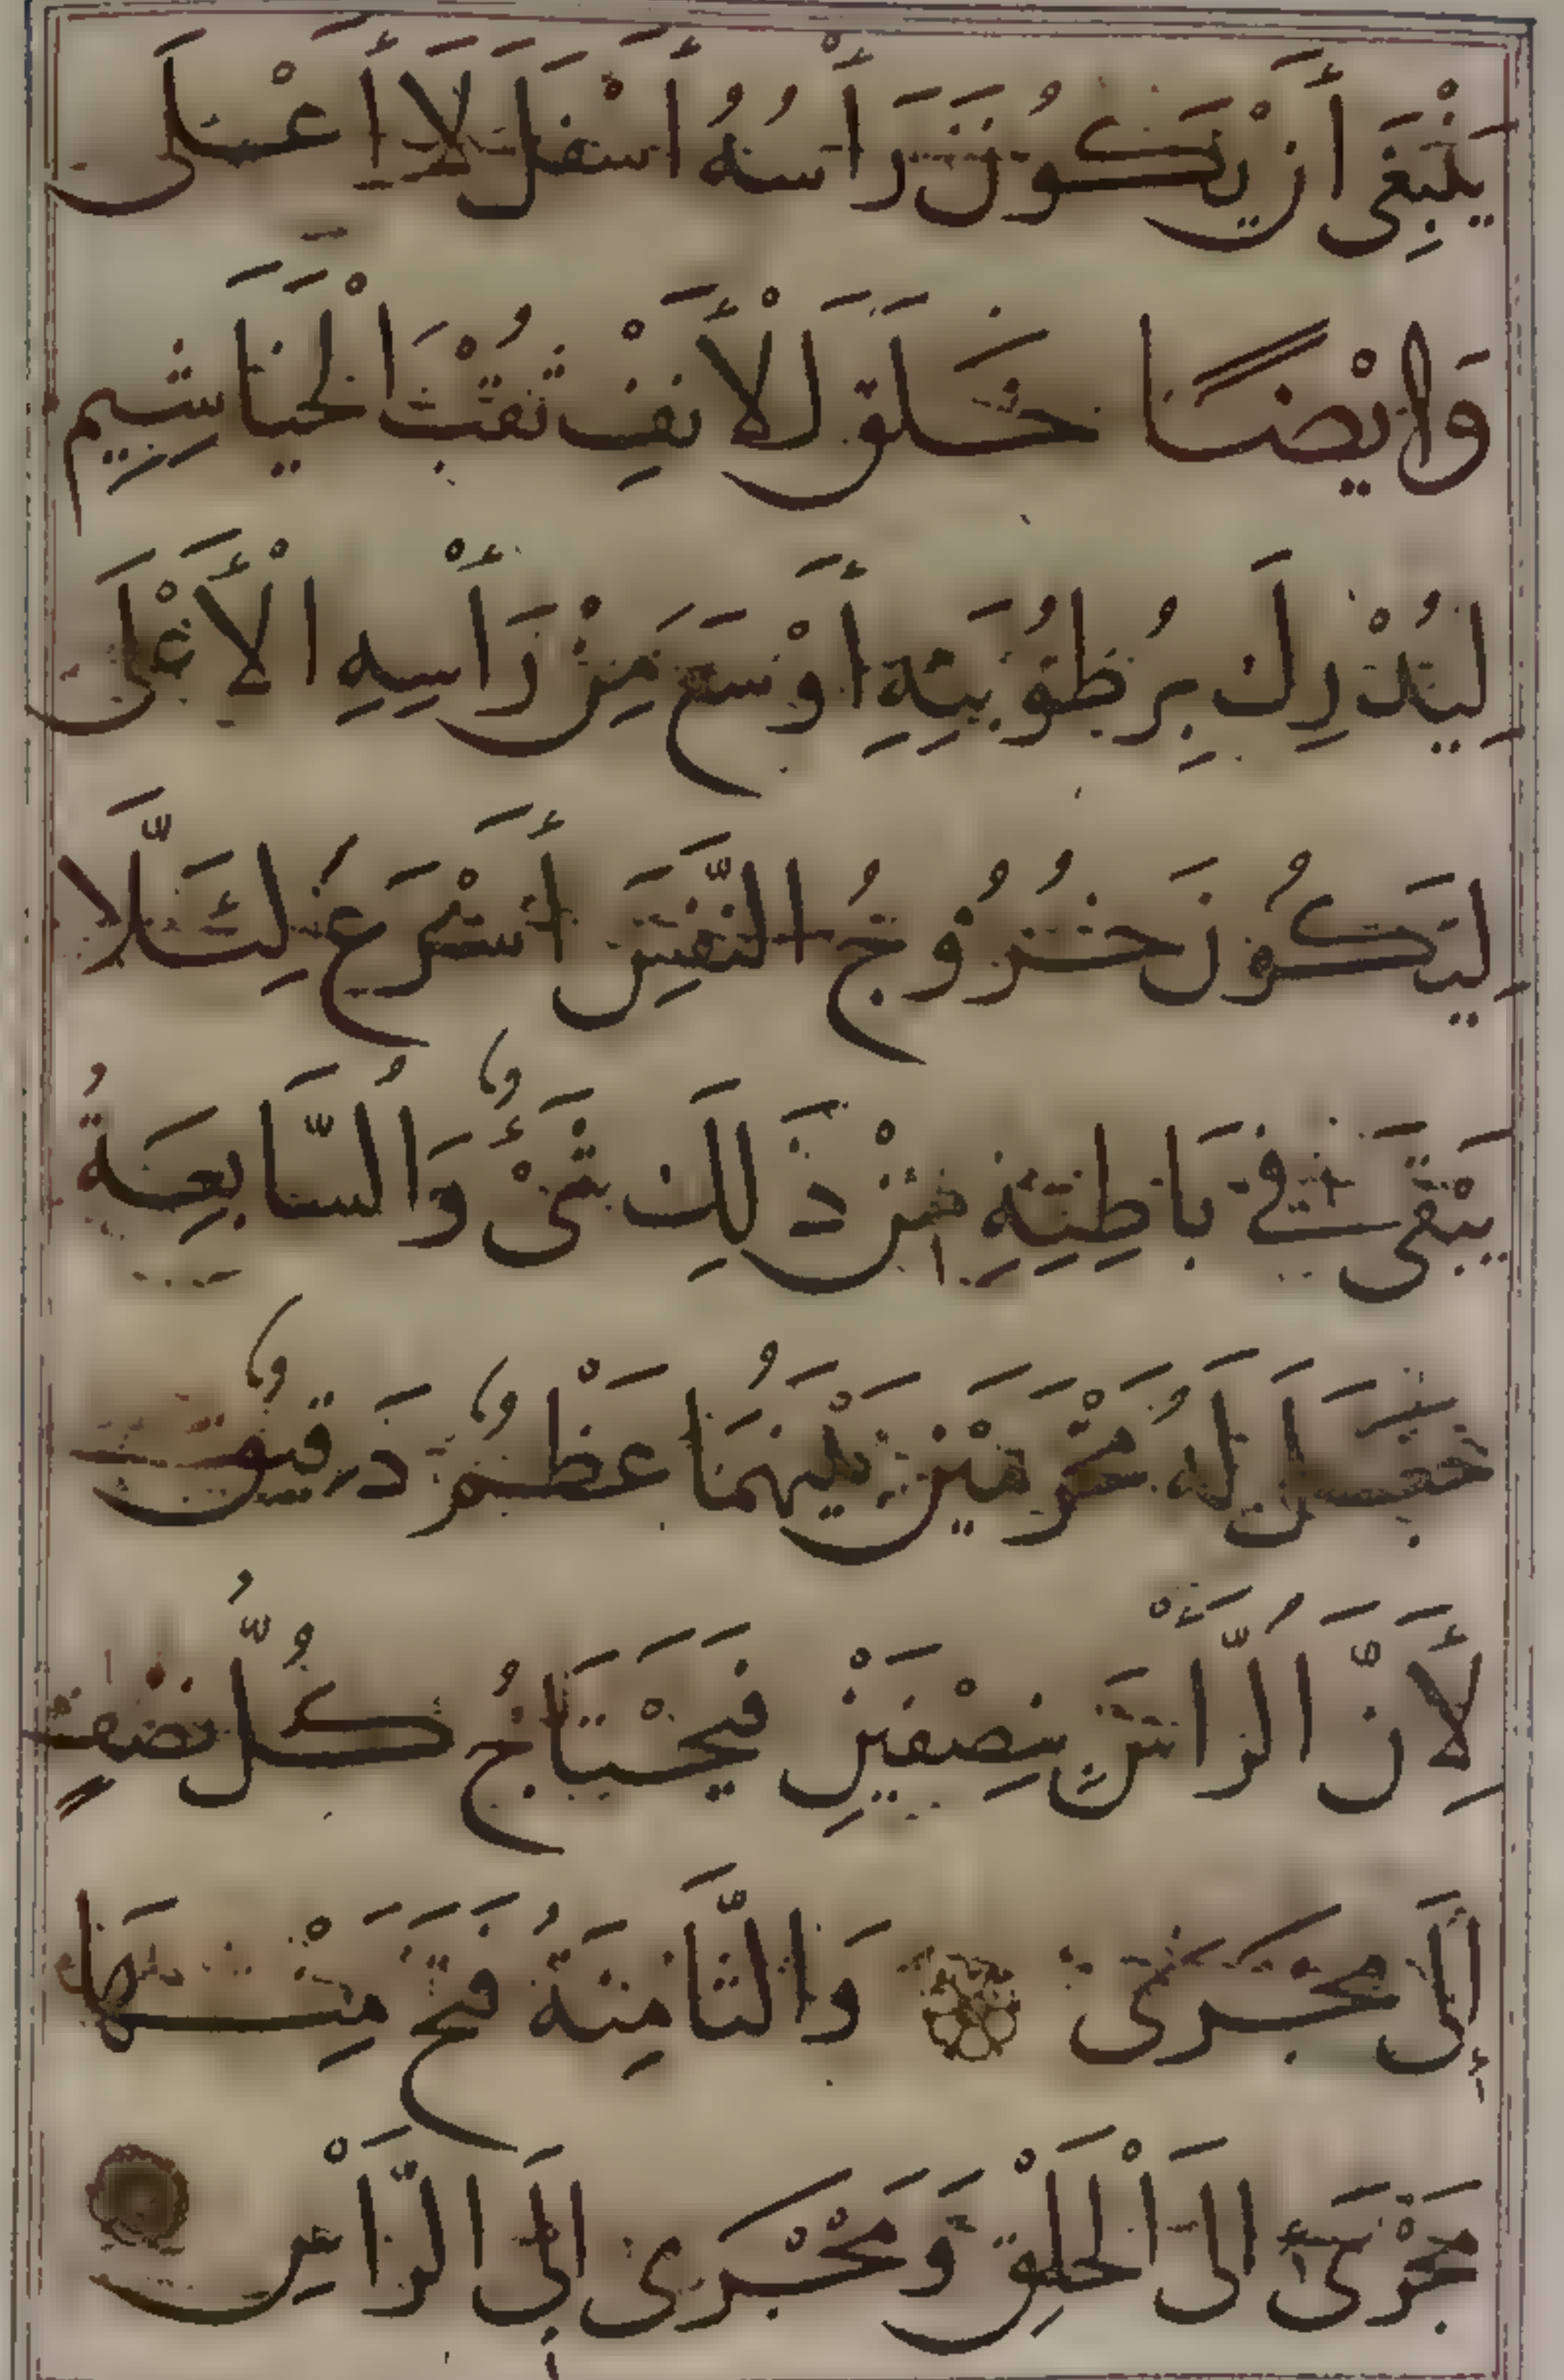 يَنْبَغِى أَنْ يَكُونَ رَأْسُهُ أَسْفَلَ لَا أَعْلَى
وَايْضًا خَلَقَ لَلْأَنْفِ ثُقْبَ الْخَيَاشِيم
لِيُدْرِكَ بِرُطُوبَتِهِ أَوْسَعَ مِنْ رَأْسِهِ الْأَعْلَى
لِيَكُونَ خُرُوجُ النَّفَسِ أَسْرَعَ لِئَلَّا
يَبْقَى فِى بَاطِنِهِ مِنْ ذَلِكَ شَىْءٌ وَالسَّابِعَةُ
جَعَلَ لَهُ مَخْرَمَيْنِ بَيْنَهُمَا عَظْمٌ دَقِيقٌ
لِأَنَّ الرَّأْسَ بِنِصْفَيْنِ فَيَحْتَاجُ كُلُّ نِصْفٍ
إِلَى مَجْرَى وَالثَّامِنَةُ فَتَحَ مِنْهَا
مَجْرَى إِلَى الْحَلْقِ وَمَجْرَى إِلَى الرَّأْسِ